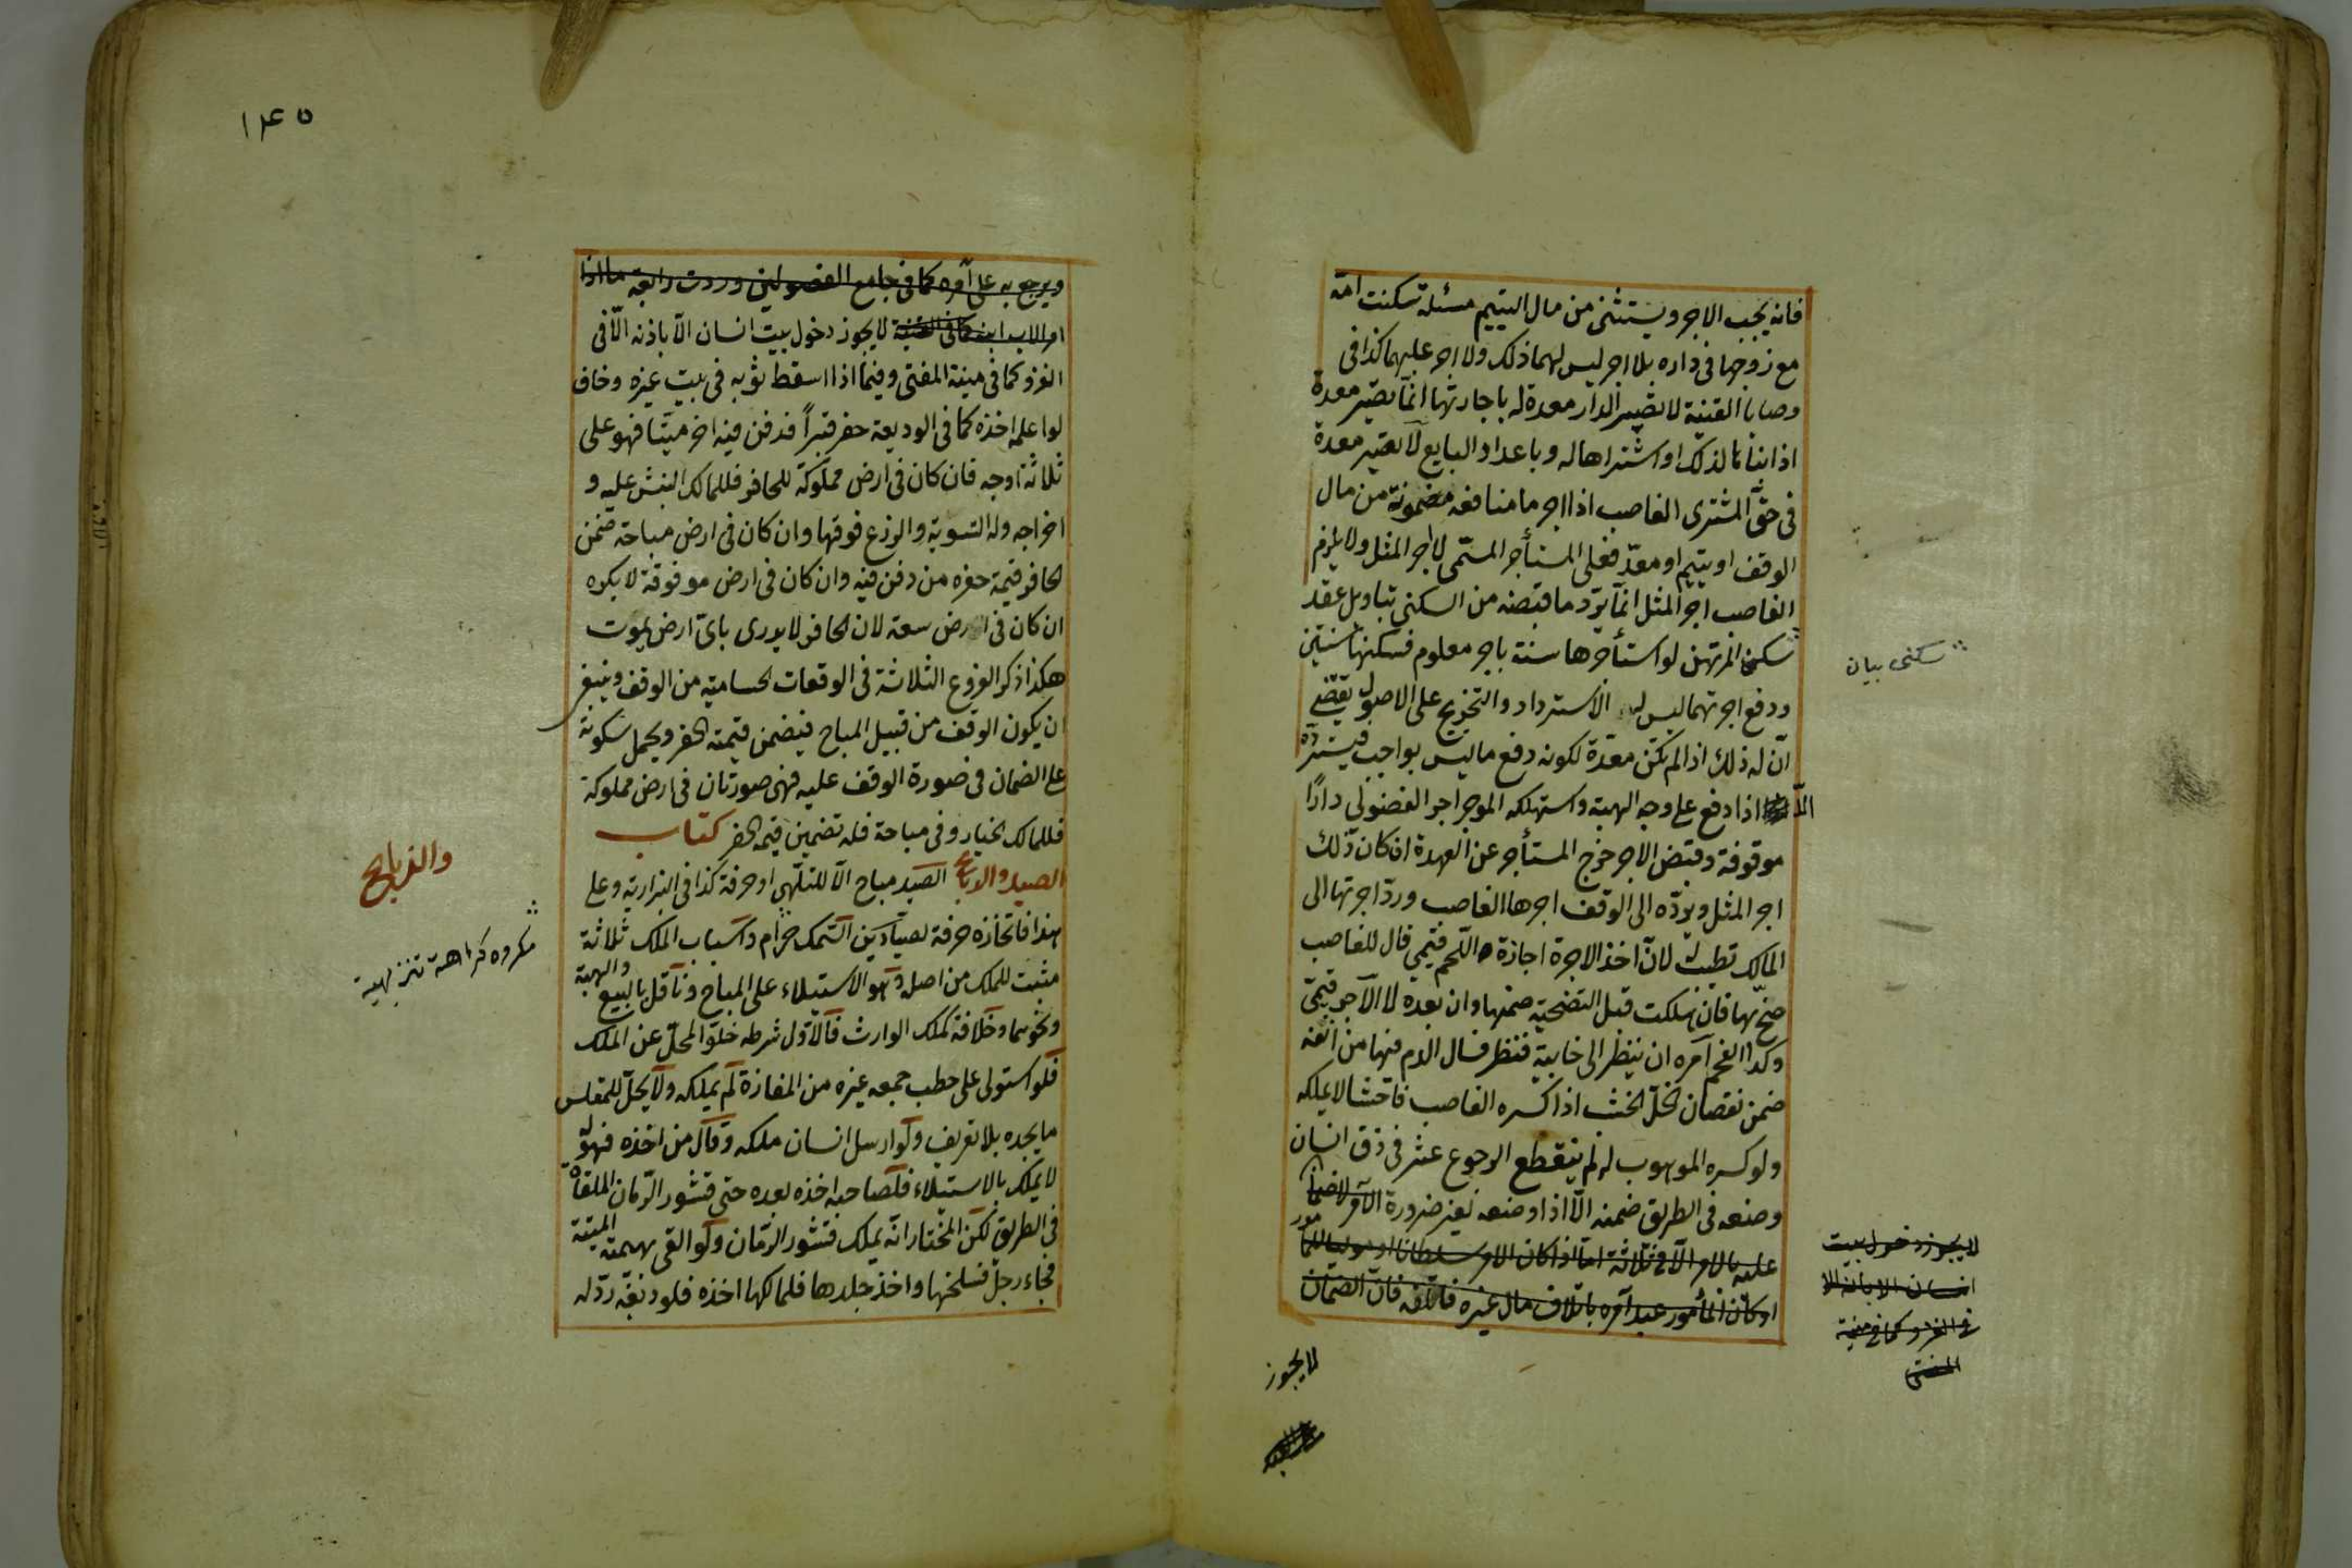 فانه يجب الاجر ويستثنى من مال اليتيم مسئلة سكنت امه
مع زوجها فى داره بلا اجر ليس لهما ذلك ولا اجر عليهما كذا فى
وصايا القنية لا تصير الدار معدة له باجارتها انما تصير معدة
اذا بناها لذلك او اشتراها له وباعداد البايع لا تصير معدة
فى حق المشترى الغاصب اذا اجر ما منافعه مضمونة من مال
الوقف او يتيم او معدّ فعلى المستأجر المسمّى لا اجر المثل ولا يلزم
الغاصب اجر المثل انما يردّ ما قبضه من السكنى بتاويل عقد
سكنى المرتهن لو استأجرها سنة باجر معلوم فسكنها سنتين
سكنى بيان
ودفع اجرتهما ليس له الاسترداد والتخريج على الاصول يقتضى
انّ له ذلك اذا لم تكن معدّة لكونه دفع ما ليس بواجب فيسترده
الّا اذا دفع على وجه الهبة واستهلكه الموجر اجر الفضولى دارًا
موقوفة وقبض الاجر خرج المستأجر عن العهدة ان كان ذلك
اجر المثل ويردّه الى الوقف اجرها الغاصب وردّ اجرتها الى
المالك تطيب له لانّ اخذ الاجرة اجازة اللحم قيمى قال للغاصب
ضحّ بها فان هلكت قبل التضحية ضمنها وان بعده لا الآجر قيمىّ
وكذا الفحم آمره ان ينظر الى خابية فنظر فسال الدم فيها من انفه
ضمن نقصان الخلّ الخشب اذا كسره الغاصب فاحشا لا يملكه
ولو كسره الموهوب له لم ينقطع الرجوع عثر فى زق انسان
وضعه فى الطريق ضمنه الّا اذا وضعه لغير ضرورة الآمر لا ضمان
عليه بالامر الّا فى ثلاثة اذا كان الآمر سلطانا او مولى للمأمور
او كان المأمور عبد آمره باتلاف مال غيره فاتلفه فانّ الضمان
لا يجوز دخول بيت
انسان الا باذنه الا
فى الغزو كما فى منية
المفتى
لا يجوز
١٤٥
ويرجع به على آمره كما فى جامع الفصولين وزدت رابعة ما اذا
امر الاب ابنه كما فى القنية لا يجوز دخول بيت انسان الّا باذنه الّا فى
الغزو كما فى منية المفتى وفيما اذا اسقط ثوبه فى بيت غيره وخاف
لو اعلمه اخذه كما فى الوديعة حفر قبراً فدفن فيه اخر ميّتا فهو على
ثلاثة اوجه فان كان فى ارض مملوكة للحافر فللمالك النبش عليه و
اخراجه وله التسوية والزرع فوقها وان كان فى ارض مباحة ضمن
الحافر قيمة حفره من دفن فيه وان كان فى ارض موقوفة لا يكره
ان كان فى الارض سعة لان الحافر لا يدرى باىّ ارض يموت
هكذا ذكر الفروع الثلاثة فى الوقعات الحسامية من الوقف وينبغى
ان يكون الوقف من قبيل المباح فيضمن قيمته الحفر ويحمل سكوته
على الضمان فى صورة الوقف عليه فهى صورتان فى ارض مملوكة
فللمالك الخيار وفى مباحة فله تضمين قيمه الحفر كتاب
الصيد والذبايح الصيد مباح الّا للتلهى او حرفة كذا فى البزازية وعلى
والذبايح
هذا فاتخاذه حرفة لصيّادين السّمك حرام واسباب الملك ثلاثة
مكروه كراهة تنزيهية
مثبت للملك من اصله وهو الاستيلاء على المباح وناقل بالبيع والهبة
ونحوهما وخلافة كملك الوارث فالاوّل شرطه خلوّ المحلّ عن الملك
فلو استولى على حطب جمعه غيره من المفازة لم يملكه ولا يحلّ للمقلس
ما يجده بلا تعريف ولو ارسل انسان ملكه وقال من اخذه فهو له
لا يملك بالاستيلاء فلصاحبه اخذه بعده حتى قشور الرّمان الملقاة
فى الطريق لكن المختار انّه يملك قشور الرّمان ولو القى بهيمة الميتة
فجاء رجل فسلخها واخذ جلدها فلمالكها اخذه فلو دبغه ردّ له